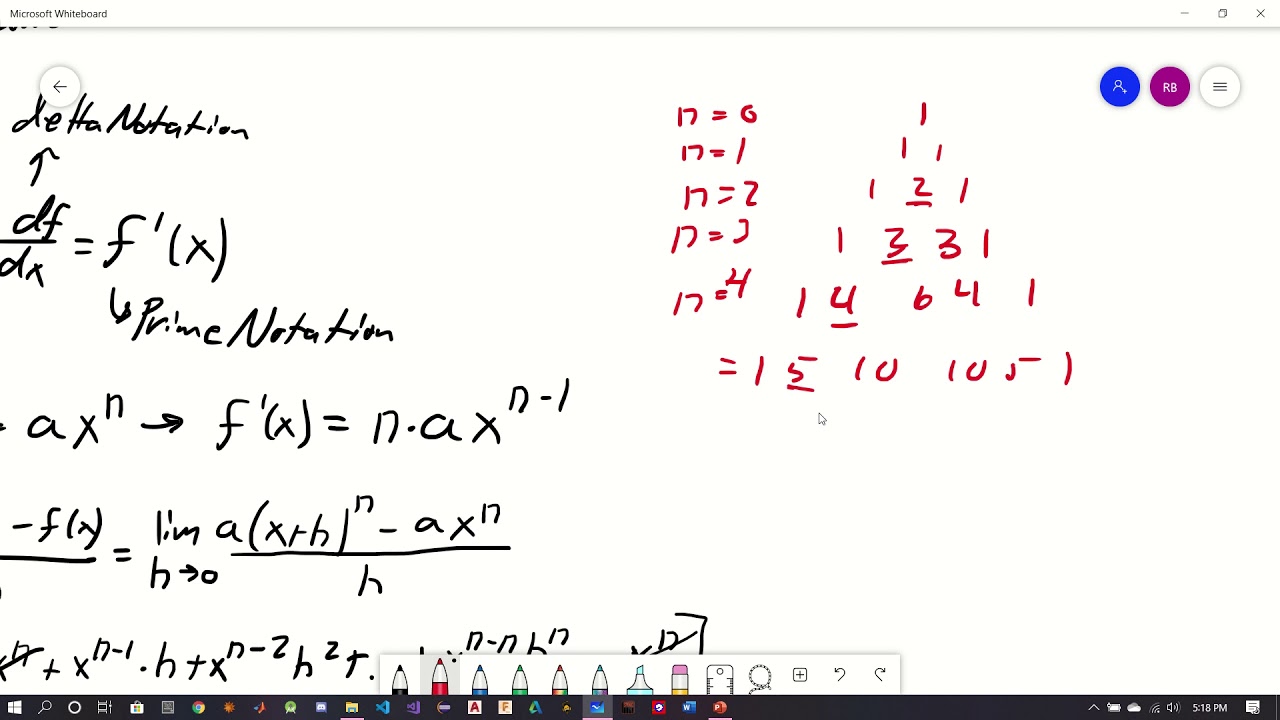 Microsoft Whiteboard
RB
delta Notation
↑
df/dx = f'(x)
↳ Prime Notation
ax^n → f'(x) = n·ax^(n-1)
- f(x) = lim h→0 a(x+h)^n - ax^n / h
x^n + x^(n-1)·h + x^(n-2)h^2 +.
x^(n-n)h^n - x^n
n = 0 1
n = 1 1 1
n = 2 1 2 1
n = 3 1 3 3 1
n = 4 1 4 6 4 1
= 1 5 10 10 5 1
5:18 PM